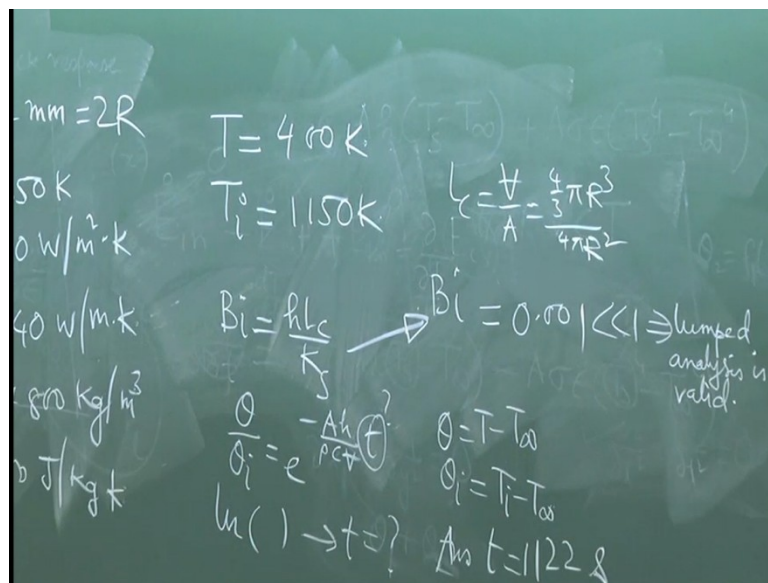 mm = 2R
50K
0 W/m²·K
40 W/m.K.
800 kg/m³
J/kg K
T = 400K.
Ti = 1150K.
Lc = V/A = (4/3 πR³)/(4πR²)
Bi = hLc/Ks → Bi = 0.001 <<1 ⇒ lumped
analysis is
valid.
θ/θi = e^(-Ah/ρcV t) ?
θ = T - T∞
θi = Ti - T∞
ln( ) → t = ?
Ans t = 1122 s